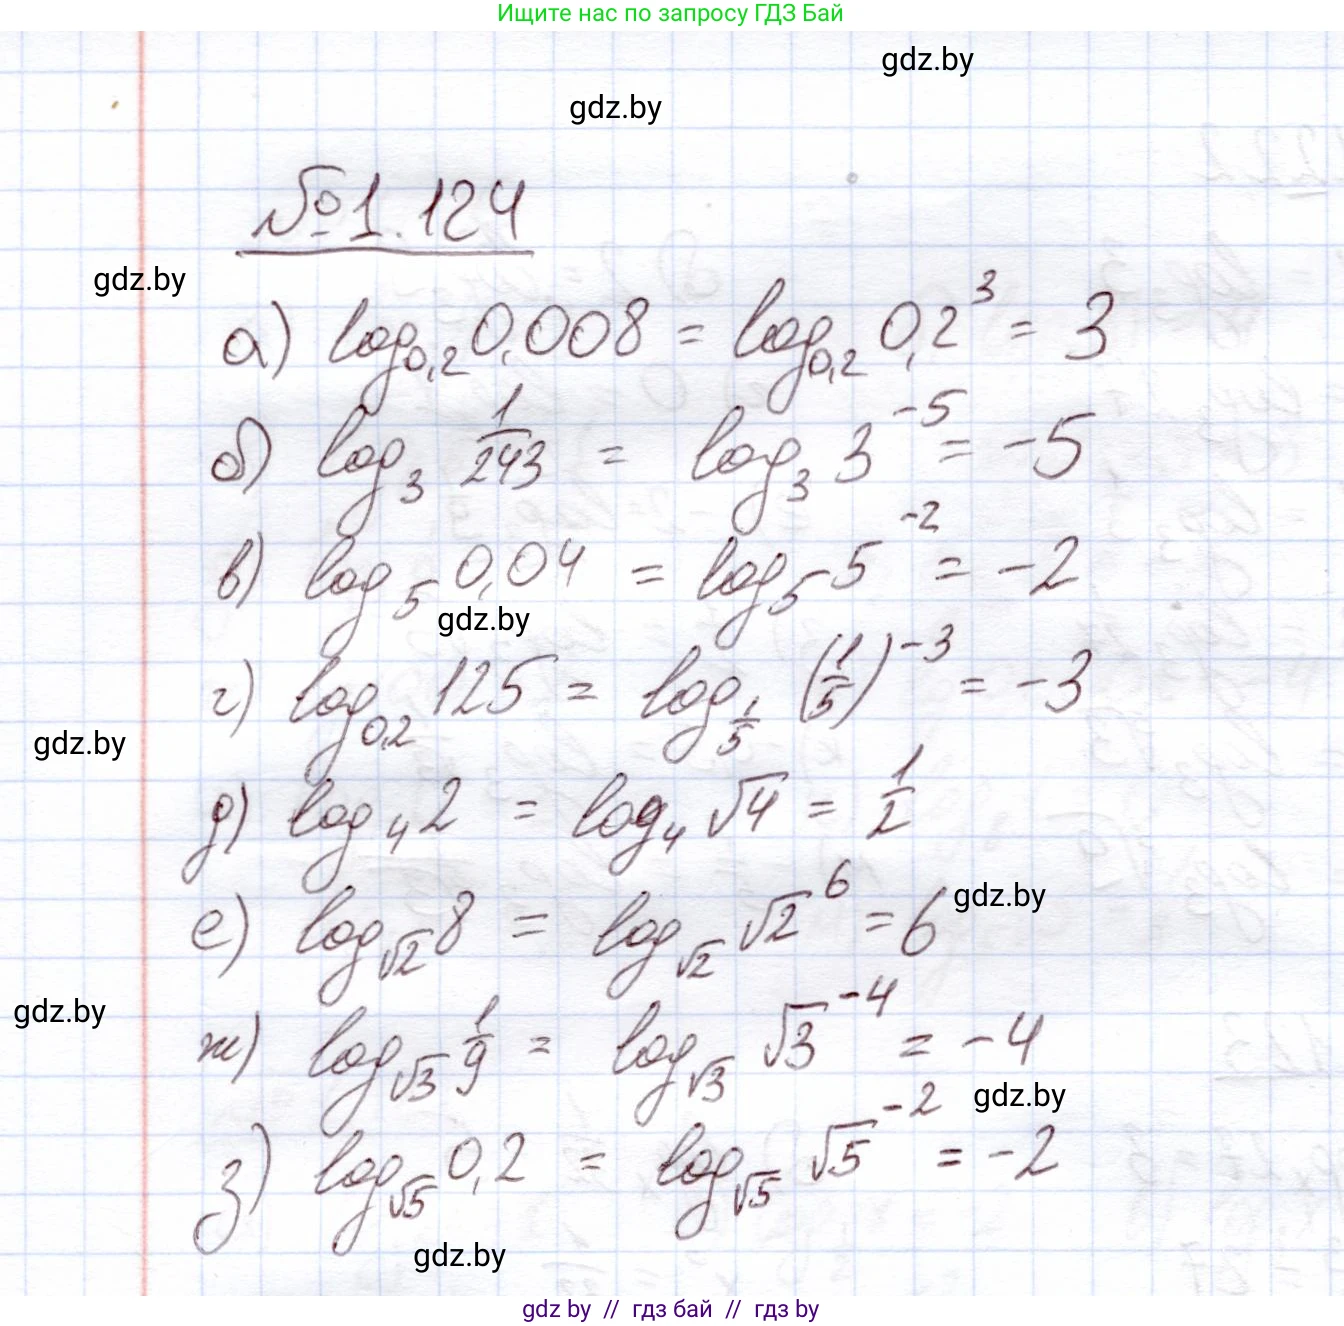 Ищите нас по запросу ГДЗ Бай
gdz.by
gdz.by
№1.124
gdz.by
а) log₀,₂ 0,008 = log₀,₂ 0,2³ = 3
б) log₃ 1/243 = log₃ 3⁻⁵ = -5
в) log₅ 0,04 = log₅ 5⁻² = -2
gdz.by
г) log₀,₂ 125 = log_{1/5} (1/5)⁻³ = -3
gdz.by
д) log₄ 2 = log₄ √4 = 1/2
е) log_{√2} 8 = log_{√2} √2⁶ = 6
gdz.by
gdz.by
ж) log_{√3} 1/9 = log_{√3} √3⁻⁴ = -4
gdz.by
з) log_{√5} 0,2 = log_{√5} √5⁻² = -2
gdz.by
gdz by // гдз бай // гдз by